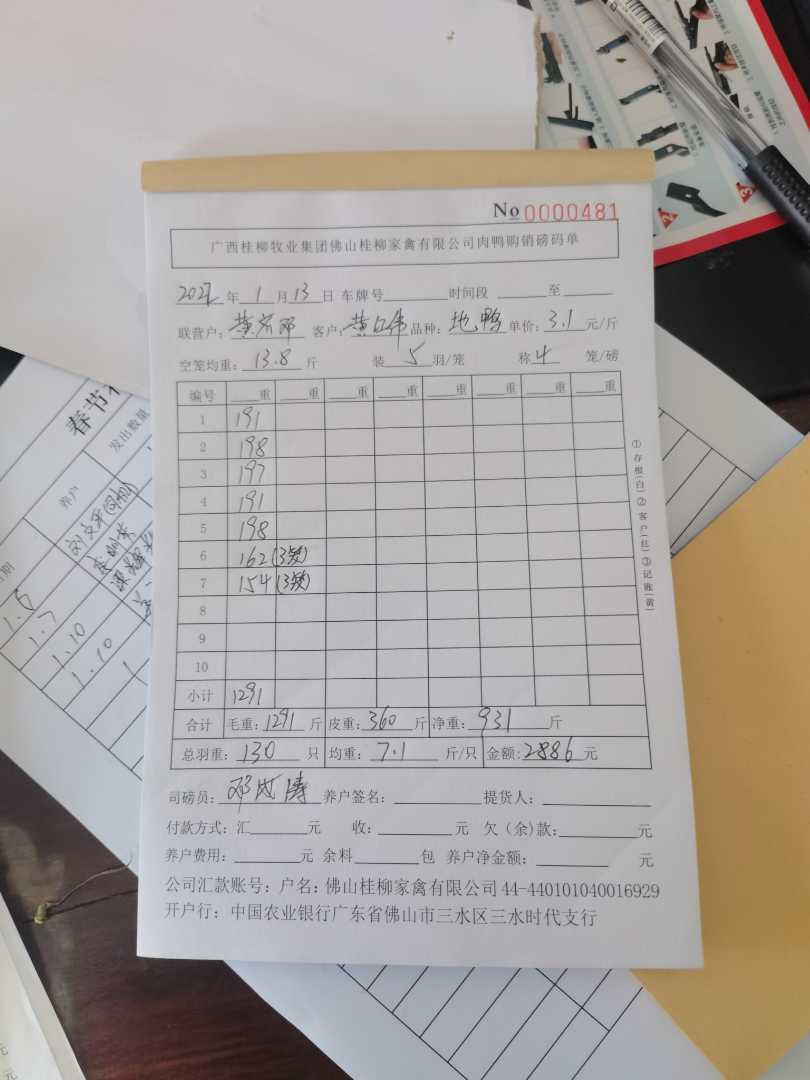 No 0000481
广西桂柳牧业集团佛山桂柳家禽有限公司肉鸭购销磅码单
2022 年 1 月 13 日 车牌号 时间段 至
联营户: 黄 邓 客户: 黄 伟 品种: 地鸭 单价: 3.1 元/斤
空笼均重: 13.8 斤 装 5 羽/笼 称 4 笼/磅
编号 重 重 重 重 重 重 重 重
1 191
2 198
3 197
4 191
5 198
6 162(3笼)
7 154(3笼)
8
9
10
小计 1291
合计 毛重: 1291 斤 皮重: 360 斤 净重: 931 斤
总羽重: 130 只 均重: 7.1 斤/只 金额: 2886 元
司磅员: 邓 涛 养户签名: 提货人:
付款方式: 汇 元 收: 元 欠(余)款: 元
养户费用: 元 余料 包 养户净金额: 元
公司汇款账号: 户名: 佛山桂柳家禽有限公司 44-440101040016929
开户行: 中国农业银行广东省佛山市三水区三水时代支行
①存根(白)②客户(红)③记账(黄)
春节
发出数量
养户
期
1.6
1.7
1.10
1.10